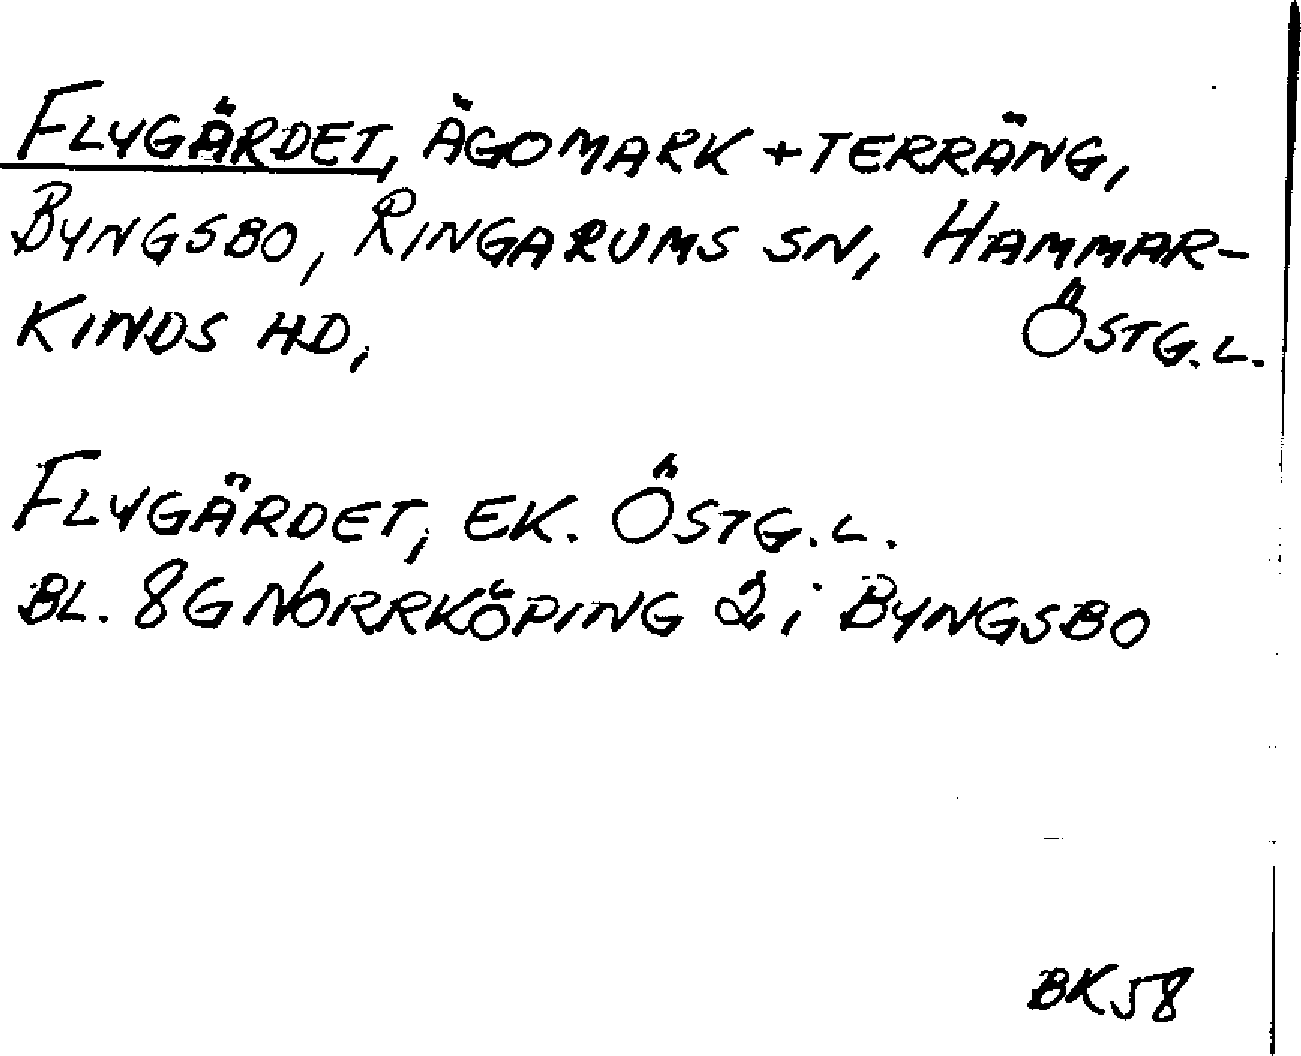 FLYGÄRDET, ÄGOMARK + TERRÄNG,
BYNGSBO, RINGARUMS SN, HAMMAR-
KINDS HD, ÖSTG.L.
FLYGÄRDET, EK. ÖSTG.L.
BL. 8G NORRKÖPING 2 i BYNGSBO
BK58